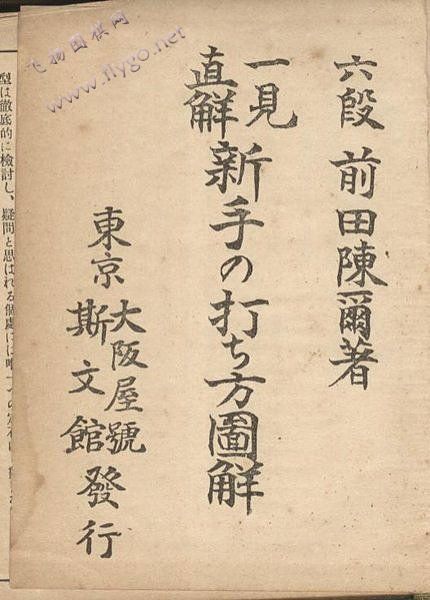 六段 前田陳爾著
一見
直解
新手の打ち方圖解
東京
大阪屋號
斯文館
發行
型は徹底的に檢討し、疑問と思はれる個處には唯一つの
飞扬围棋网
www.flygo.net